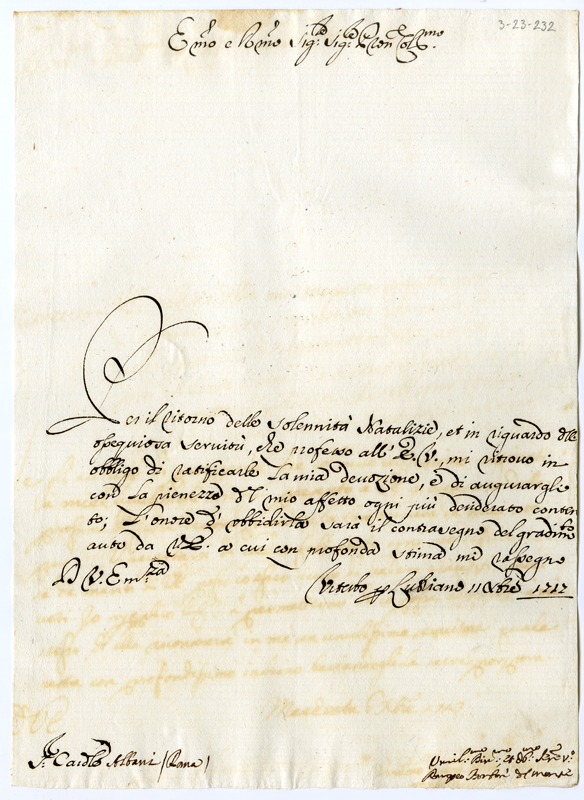 3-23-232
Em̃o e Rm̃o Sig.re Sig.re Pron Col.mo
Per il ritorno delle solennità Natalizie, et in riguardo dell'
ossequiosa servitù, che professo all' E.V., mi ritrovo in
obbligo di ratificarle la mia devozione, e di augurargli
con la pienezza del mio affetto ogni più desiderato conten
to; L'onore d'obbidirla sarà il contrasegno del gradim.to
auto da V.E. a cui con profonda stima mi rassegno
D V. Em.za
Viterbo p Lubriano 11 Xbre 1717
S.r Card.le Albani (Roma)
Umil.mo Div.mo et Obb. Sre V.o
del Monte